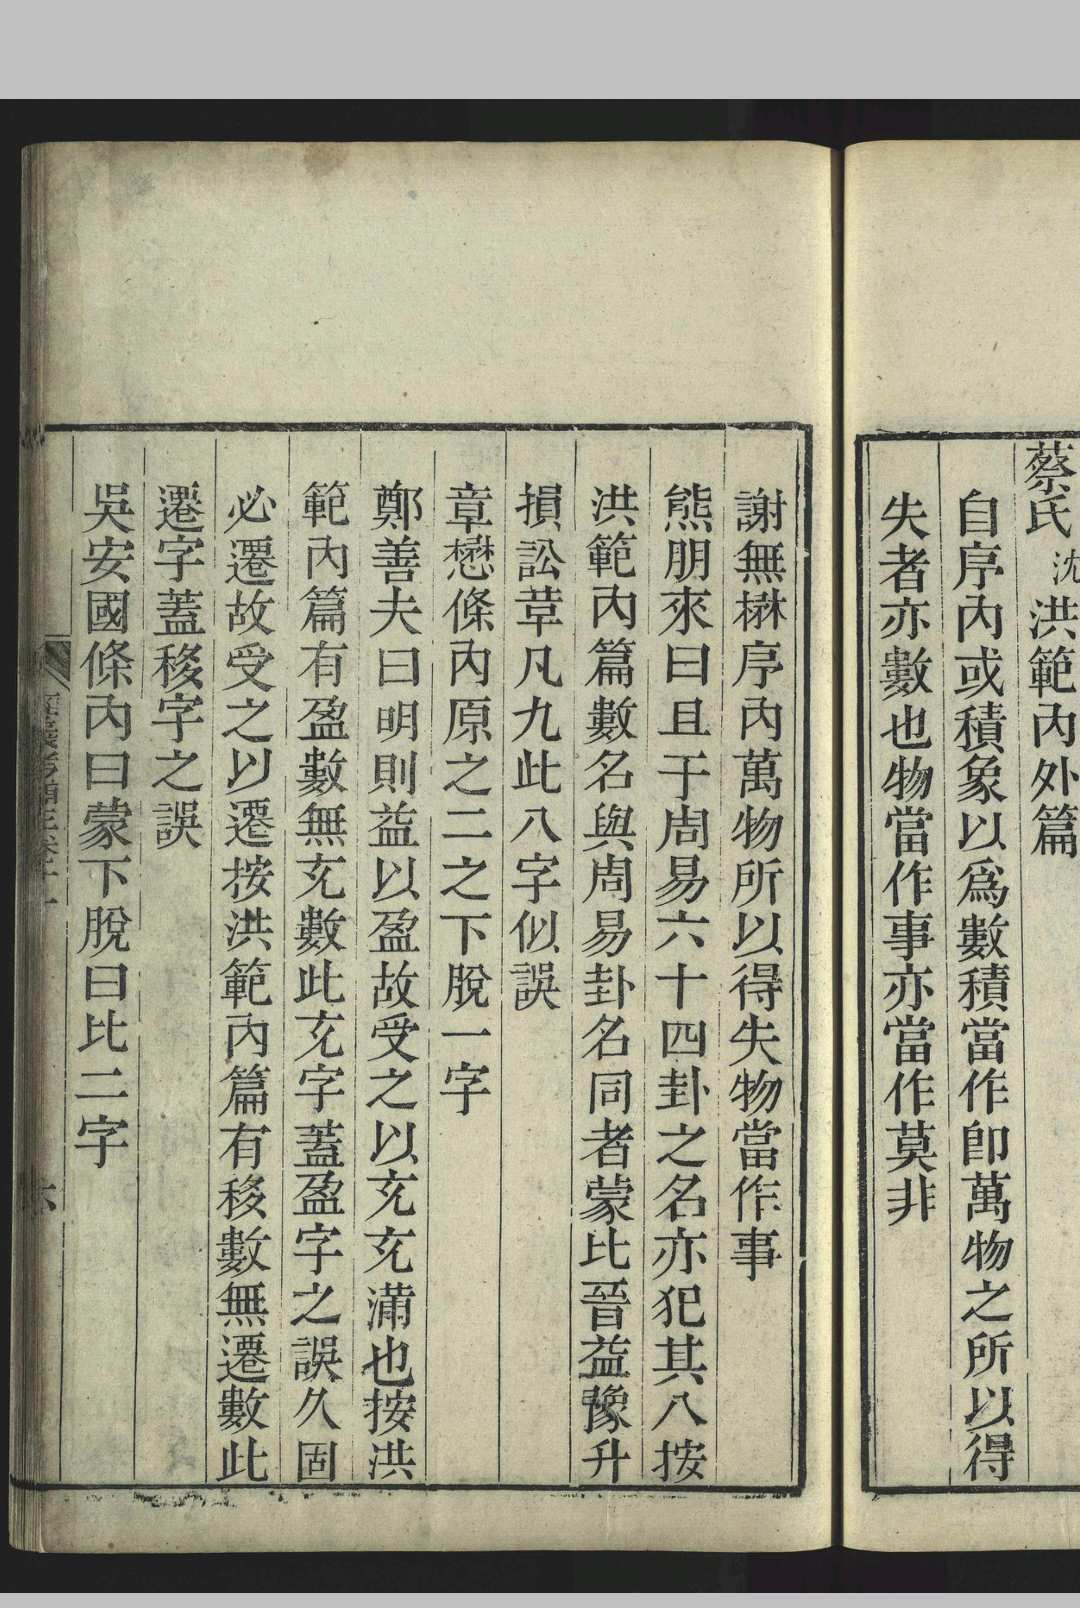 蔡氏沈洪範內外篇
自序內或積象以爲數積當作卽萬物之所以得
失者亦數也物當作事亦當作莫非
謝無楙序內萬物所以得失物當作事
熊朋來曰且于周易六十四卦之名亦犯其八按
洪範內篇數名與周易卦名同者蒙比晉益豫升
損訟葢凡九此八字似誤
章懋條內原之二之下脫一字
鄭善夫曰明則益以盈故受之以充充滿也按洪
範內篇有盈數無充數此充字蓋盈字之誤久固
必遷故受之以遷按洪範內篇有移數無遷數此
遷字蓋移字之誤
吳安國條內曰蒙下脫曰比二字
經義考補正卷十一
六